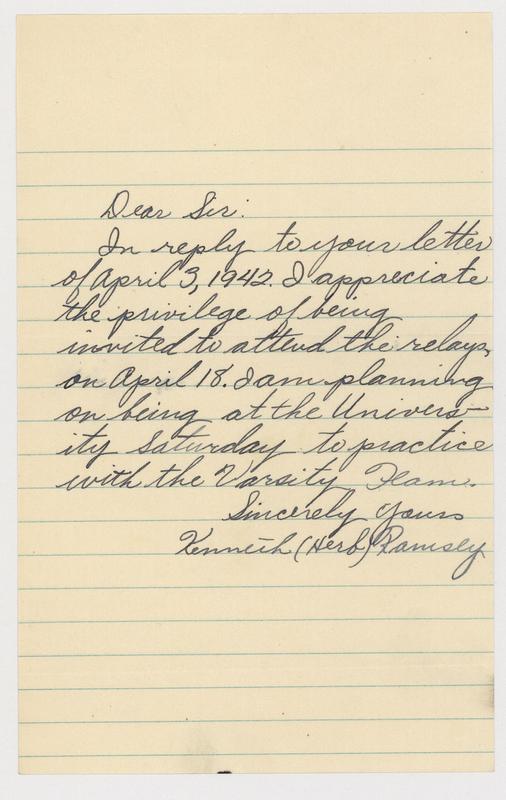 Dear Sir:
In reply to your letter
of April 3, 1942. I appreciate
the privilege of being
invited to attend the relays,
on April 18. I am planning
on being at the Univers-
ity Saturday to practice
with the Varsity Team.
Sincerely Yours
Kenneth (Herb) Ramsey